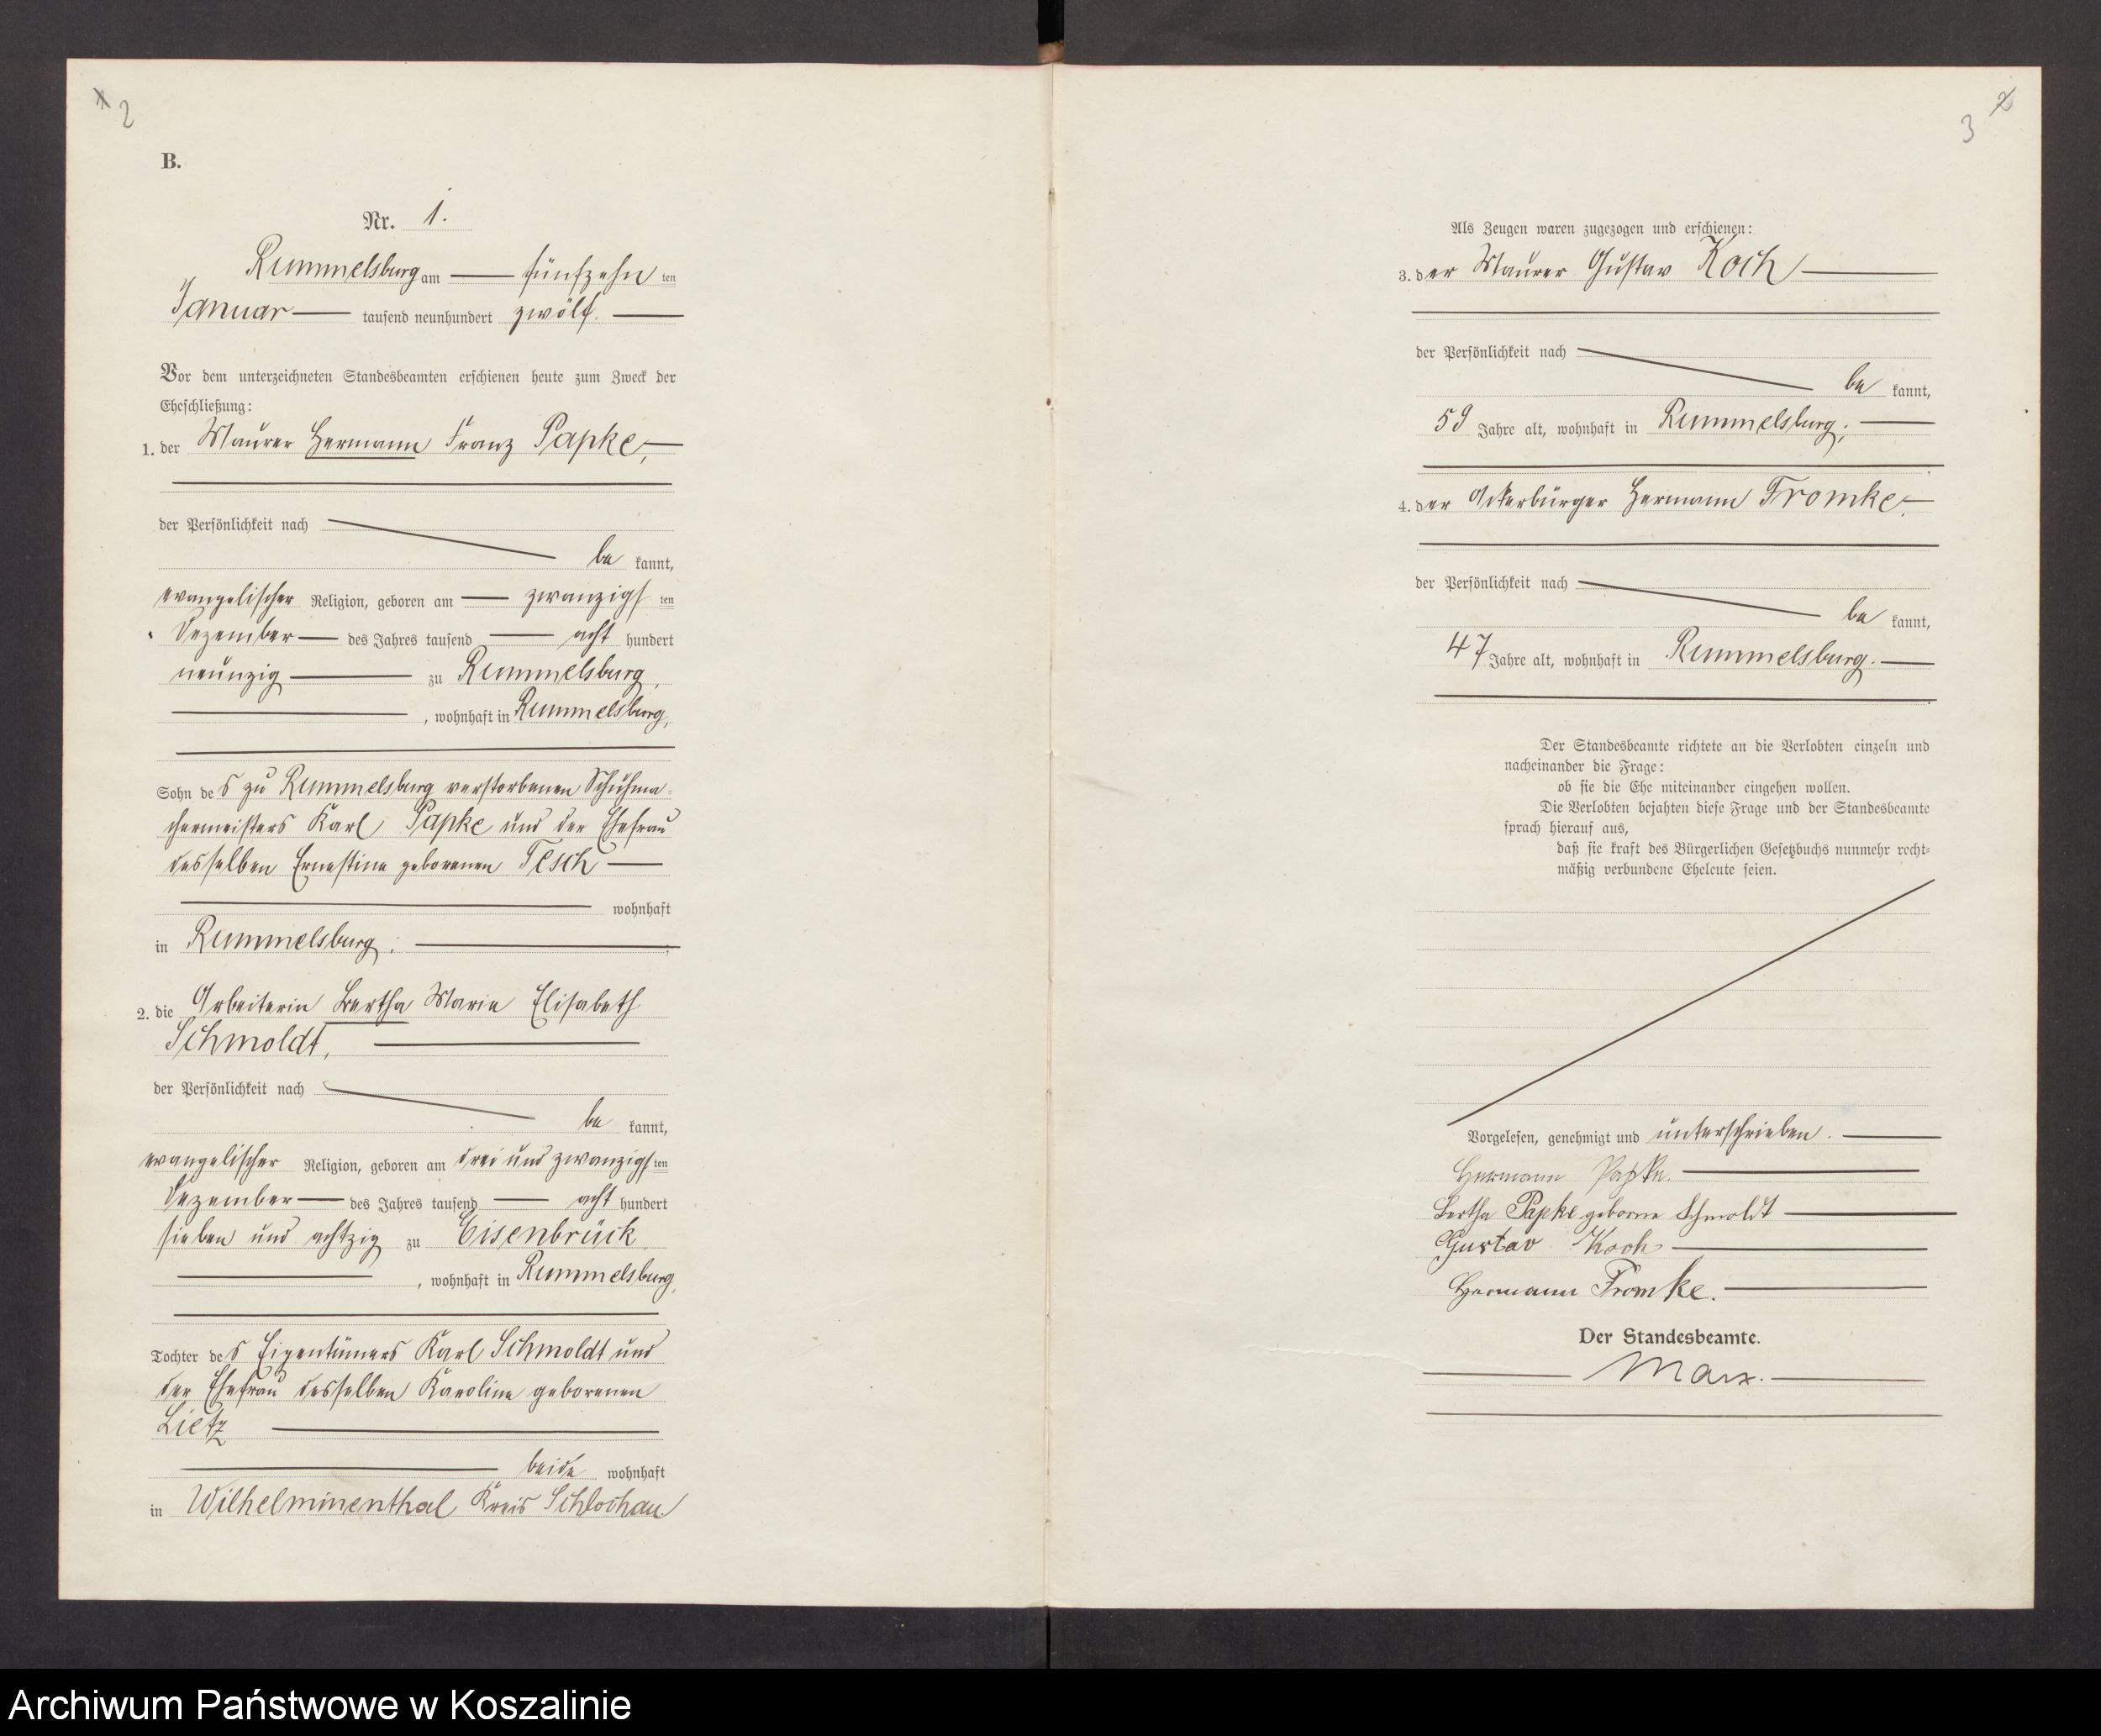 1 2
B.
Nr. 1.
Rummelsburg am fünfzehn ten
Januar tausend neunhundert zwölf.
Vor dem unterzeichneten Standesbeamten erschienen heute zum Zweck der
Eheschließung:
1. der Maurer Hermann Franz Papke,
der Persönlichkeit nach
be kannt,
evangelischer Religion, geboren am zwanzigs ten
Dezember des Jahres tausend acht hundert
neunzig zu Rummelsburg,
, wohnhaft in Rummelsburg,
Sohn des zu Rummelsburg verstorbenen Schuhma-
chermeisters Karl Papke und der Ehefrau
desselben Ernestine geborenen Tesch
wohnhaft
in Rummelsburg;
2. die Arbeiterin Bertha Marie Elisabeth
Schmoldt,
der Persönlichkeit nach
be kannt,
evangelischer Religion, geboren am drei und zwanzigs ten
Dezember des Jahres tausend acht hundert
sieben und achtzig zu Eisenbrück,
, wohnhaft in Rummelsburg,
Tochter des Eigentümers Karl Schmoldt und
der Ehefrau desselben Karoline geborenen
Lietz
beide wohnhaft
in Wilhelminenthal Kreis Schlochau.
3 2
Als Zeugen waren zugezogen und erschienen:
3. der Maurer Gustav Koch
der Persönlichkeit nach
be kannt,
59 Jahre alt, wohnhaft in Rummelsburg;
4. der Ackerbürger Hermann Fromke,
der Persönlichkeit nach
be kannt,
47 Jahre alt, wohnhaft in Rummelsburg.
Der Standesbeamte richtete an die Verlobten einzeln und
nacheinander die Frage:
ob sie die Ehe miteinander eingehen wollen.
Die Verlobten bejahten diese Frage und der Standesbeamte
sprach hierauf aus,
daß sie kraft des Bürgerlichen Gesetzbuchs nunmehr recht-
mäßig verbundene Eheleute seien.
Vorgelesen, genehmigt und unterschrieben.
Hermann Papke.
Bertha Papke geborne Schmoldt
Gustav Koch
Hermann Fromke.
Der Standesbeamte.
Marx.
Archiwum Państwowe w Koszalinie